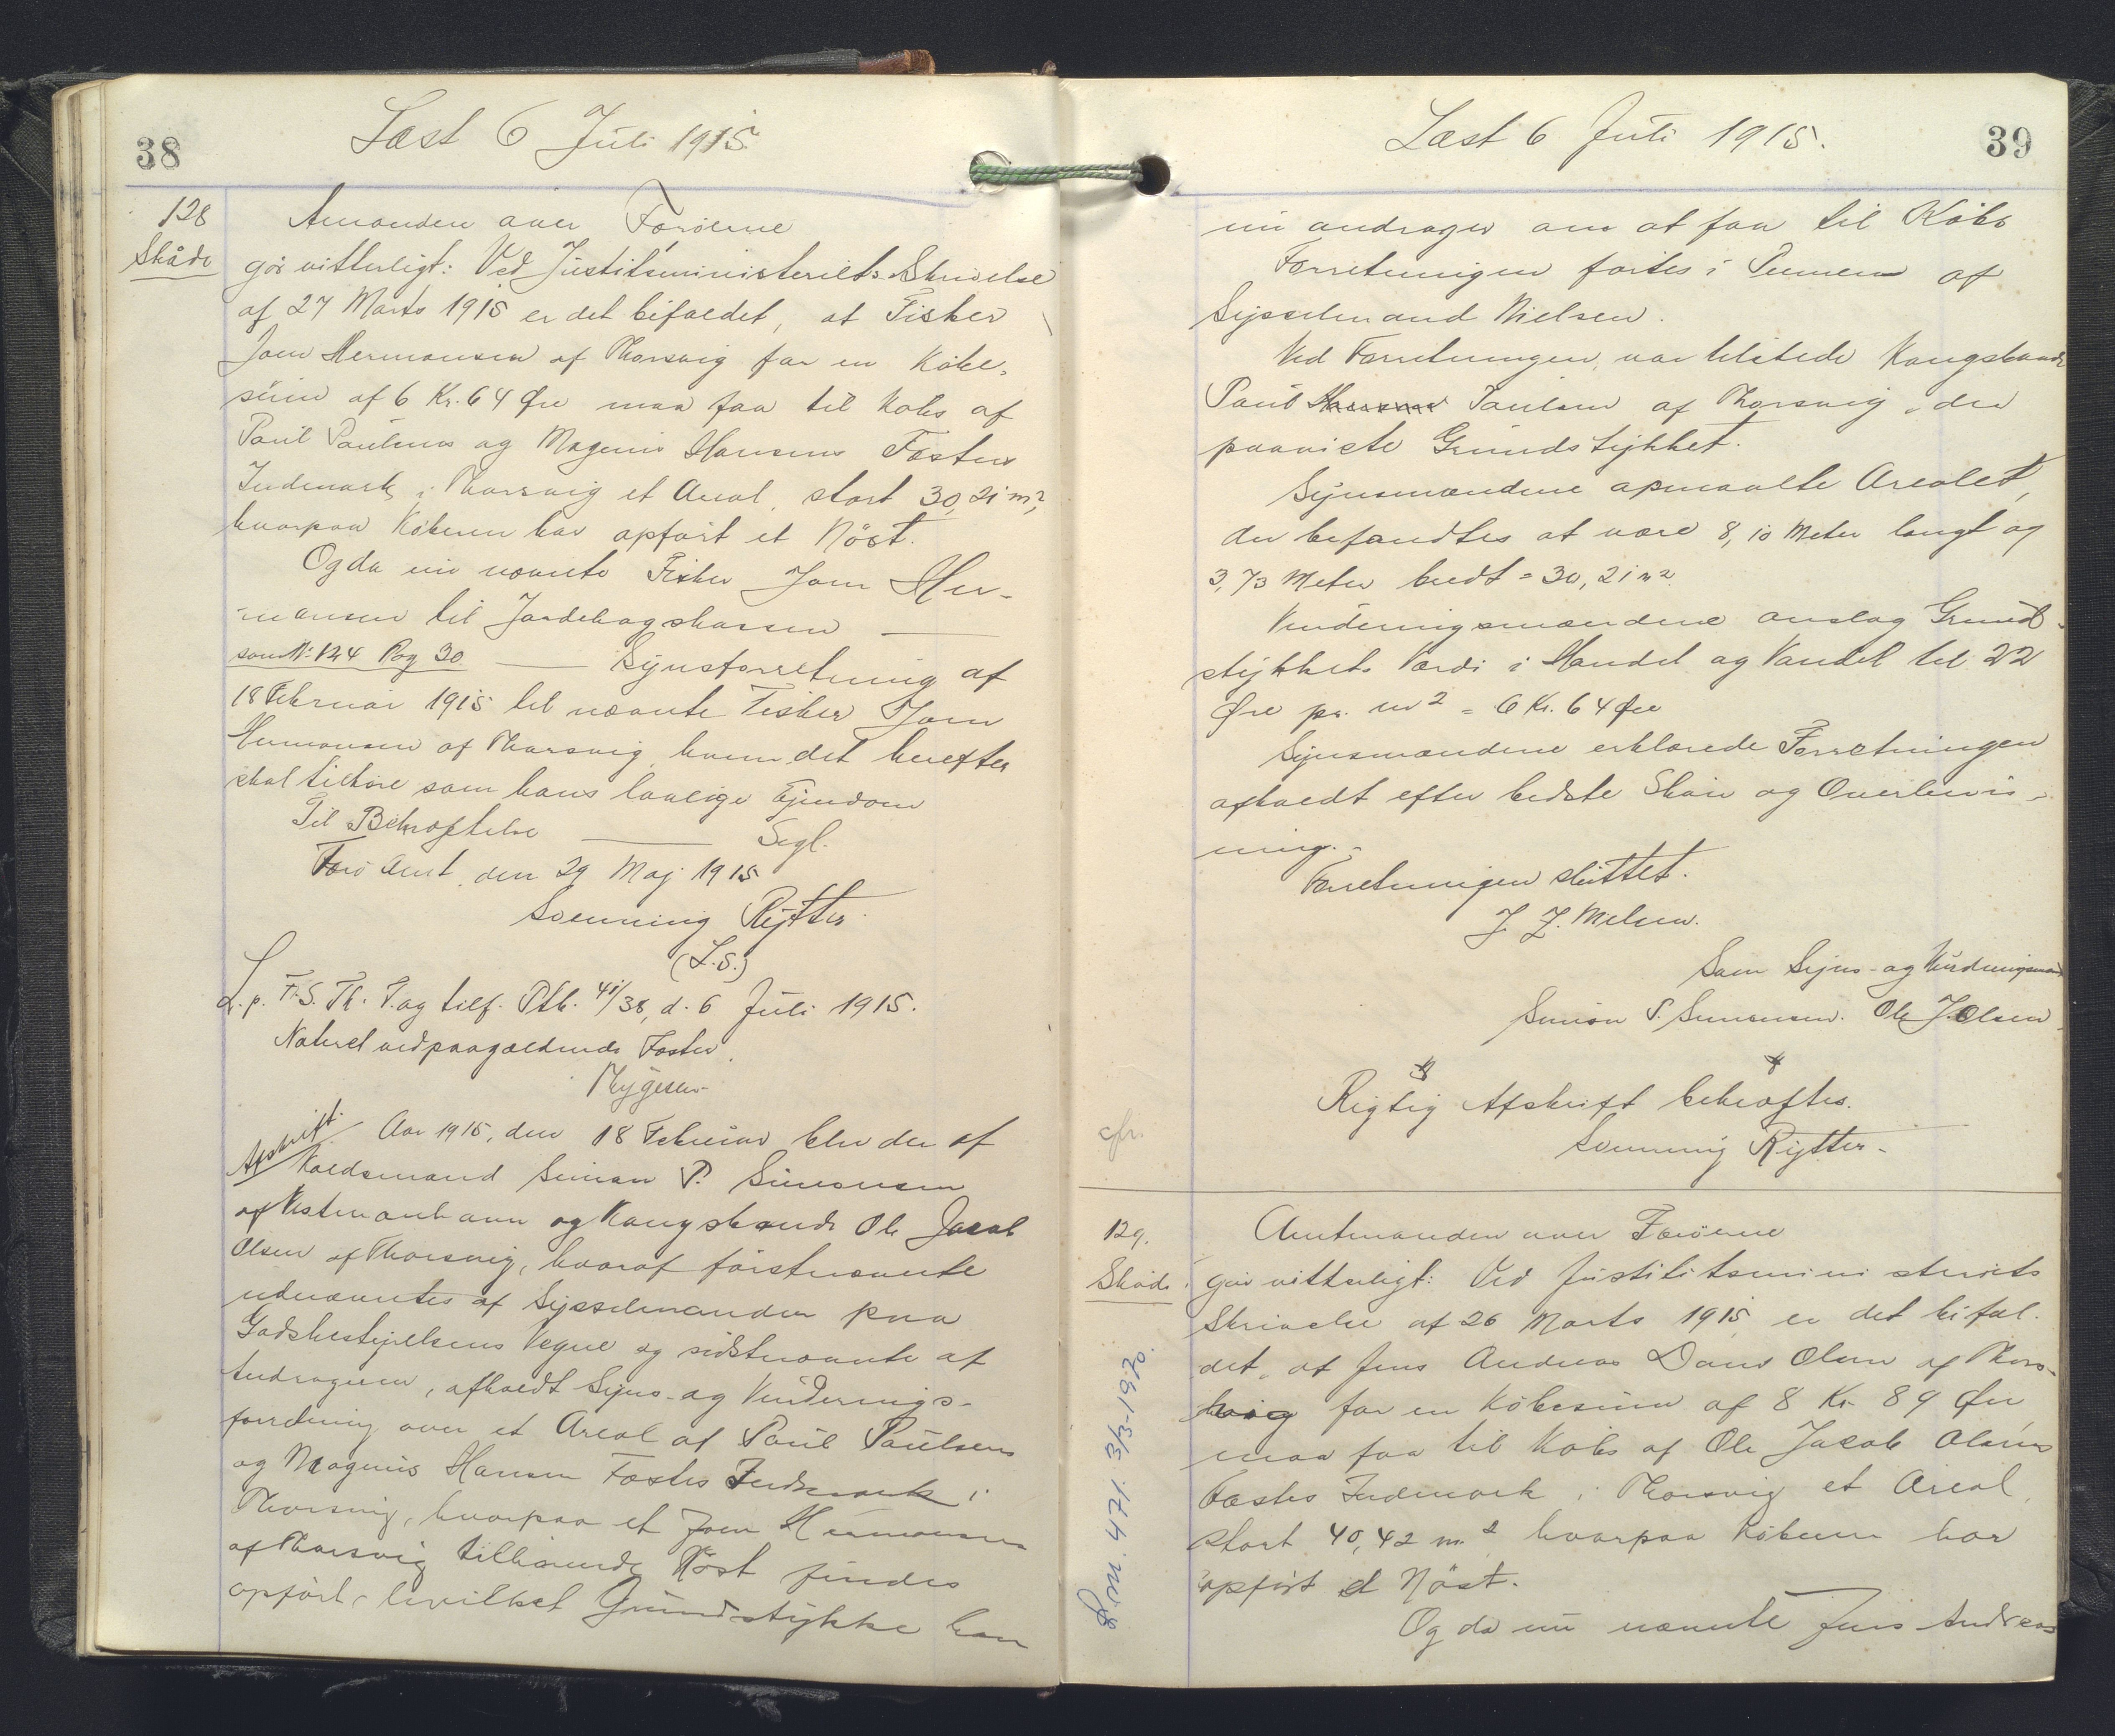 38
Læst 6 Juli 1915.
128
Skøde
Amtmanden over Færöerne
gör vitterligt: Ved Justitsministeriets Skrivelse
af 27 Marts 1915 er det bifaldet, at Fisker
Joen Hermansen af Thorsvig for en Köbe-
sum af 6 Kr. 64 Øre maa faa til Köbs af
Poul Poulsens og Magnus Hansens Fæstes
Indmark i Thorsvig et Areal, stort 30,21 m²,
hvorpaa Köberen har opfört et Nöst.
Og da nu nævnte Fisker Joen Her-
mansen til Jordebogskassen
som No 124 Pag 30 Synsforretning af
18 Februar 1915 til nævnte Fisker Joen
Hermansen af Thorsvig, hvem det herefter
skal tilhöre som hans lovlige Ejendom
Til Bekræftelse Segl.
Færö Amt, den 29 Maj 1915
Svenning Rytter.
(L.S.)
L. p. F. S. Th. T. og tilf. Ptb. 41/38, d. 6 Juli 1915.
Noteret ved paagældende Fæste.
Thygesen
Afskrift.
Aar 1915, den 18 Februar blev der af
Voldsmand Simon P. Simonsen
af Vestmanhavn og Kongsbonde Ole Jacob
Olsen af Thorsvig, hvoraf förstnævnte
udnævntes af Sysselmanden paa
Godsbestyrelsens Vegne og sidstnævnte af
Andrageren, afholdt Syns- og Vurderings-
forretning over et Areal af Poul Poulsens
og Magnus Hansens Fæstes Indmark i
Thorsvig, hvorpaa et Joen Hermansen
af Thorsvig tilhörende Nöst findes
opfört, hvilket Grundstykke han
39
Læst 6 Juli 1915.
nu andrager om at faa til Köbs
Forretningen förtes i Pennen af
Sysselmand Nielsen.
Ved Forretningen var tilstede Kongsbonde
Poul Poulsen af Thorsvig, der
paaviste Grundstykket.
Synsmændene opmaalte Arealet,
der befandtes at være 8,10 Meter langt og
3,73 Meter bredt = 30,21 m².
Vurderingsmændene anslog Grund-
stykkets Værdi i Handel og Vandel til 22
Øre pr. m² = 6 Kr. 64 Øre
Synsmændene erklærede Forretningen
afholdt efter bedste Skön og Overbevis-
ning.
Forretningen sluttet.
J. Z. Nielsen.
Som Syns- og Vurderingsmænd
Simon P. Simonsen. Ole J. Olsen
Rigtig Afskrift bekræftes.
Svenning Rytter.
cfr.
129.
Skøde
Amtmanden over Færöerne
gör vitterligt: Ved Justitsministeriets
Skrivelse af 26 Marts 1915 er det bifal-
det, at Jens Andreas Daniel Olsen af Thors-
vig for en Köbesum af 8 Kr 89 Øre
maa faa til Köbs af Ole Jacob Olsens
Fæstes Indmark i Thorsvig et Areal,
stort 40,42 m², hvorpaa Köberen har
opfört et Nöst.
Og da nu nævnte Jens Andreas
L. nr. 471. 3/3-1970.